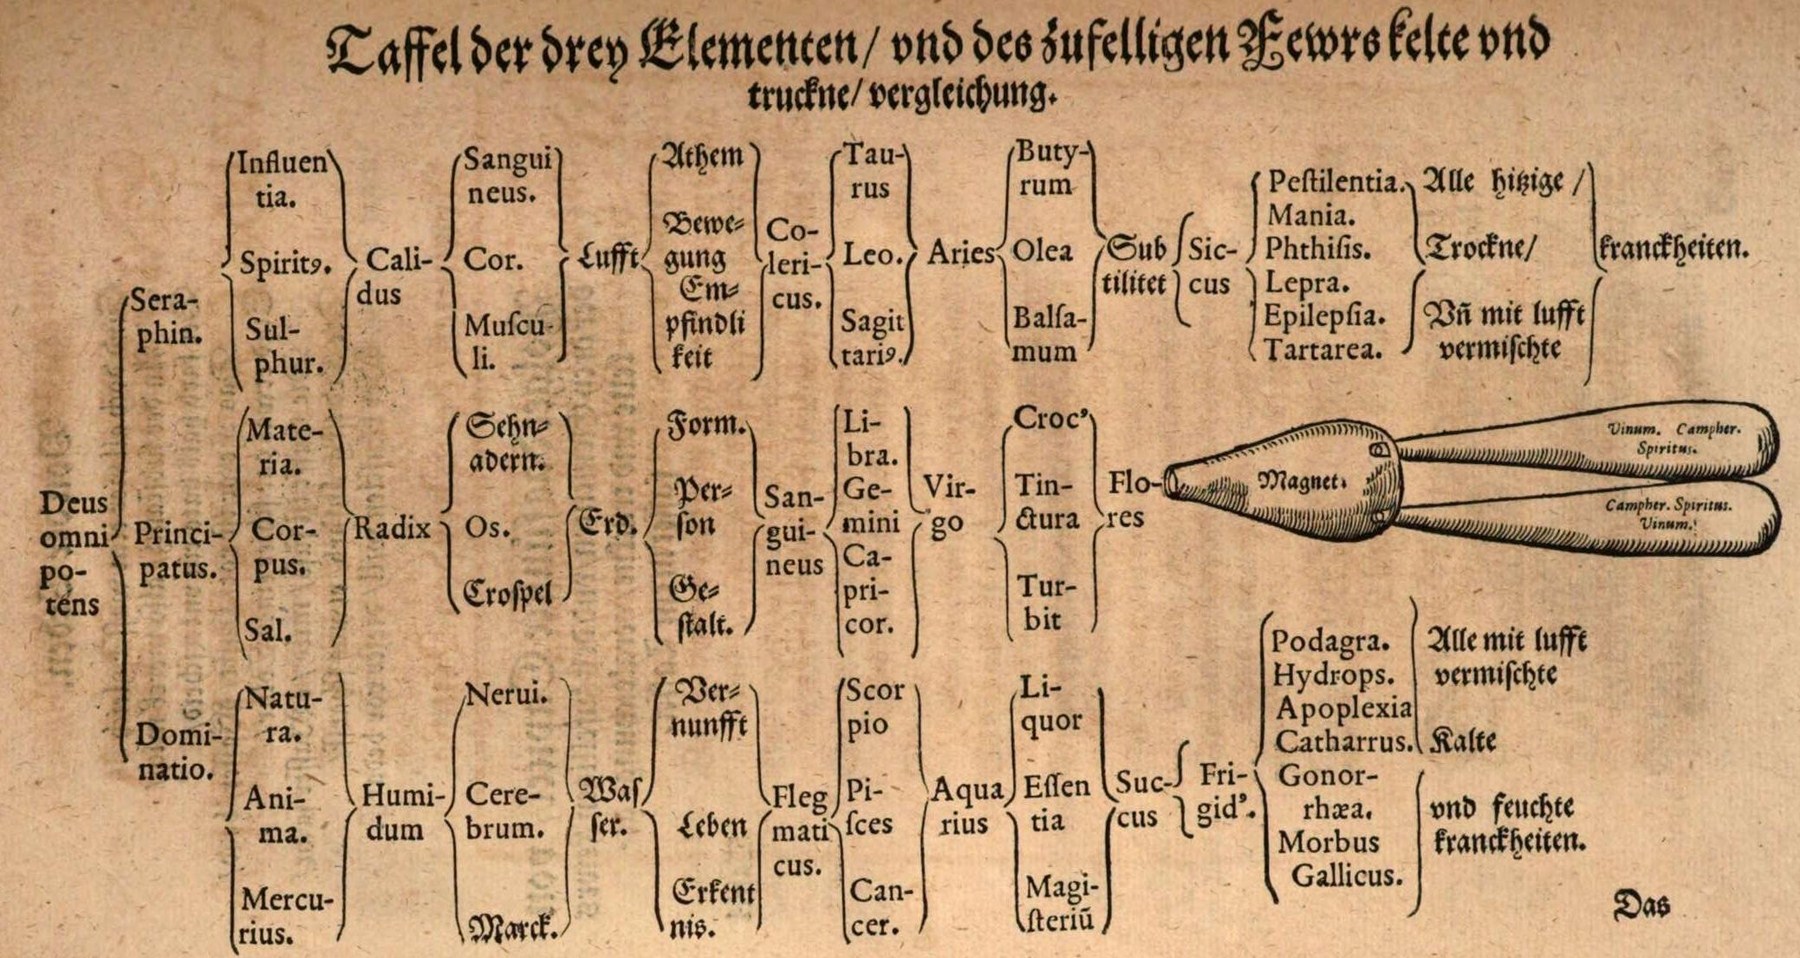 Taffel der drey Elementen/ vnd des zufelligen Fewrs kelte vnd
truckne/ vergleichung.
Deus
omni-
po-
tēns
Sera-
phin.
Influen
tia.
Spiritꝰ.
Sul-
phur.
Cali-
dus
Sangui
neus.
Cor.
Muſcu-
li.
Lufft
Athem
Bewe⸗
gung
Em⸗
pfindli
keit
Co-
leri-
cus.
Tau-
rus
Leo.
Sagit
tariꝰ.
Aries
Buty-
rum
Olea
Balſa-
mum
Sub
tilitet
Sic-
cus
Peſtilentia.
Mania.
Phthiſis.
Lepra.
Epilepſia.
Tartarea.
Alle hitzige /
Trockne/
Vñ mit lufft
vermiſchte
kranckheiten.
Princi-
patus.
Mate-
ria.
Cor-
pus.
Sal.
Radix
Sehn⸗
adern.
Os.
Croſpel
Erd.
Form.
Per⸗
ſon
Ge⸗
ſtalt.
San-
gui-
neus
Li-
bra.
Ge-
mini
Ca-
pri-
cor.
Vir-
go
Crocꝰ
Tin-
ctura
Tur-
bit
Flo-
res
Magnet.
Vinum. Campher.
Spiritus.
Campher. Spiritus.
Vinum.
Domi-
natio.
Natu-
ra.
Ani-
ma.
Mercu-
rius.
Humi-
dum
Nerui.
Cere-
brum.
Marck.
Waſ
ſer.
Ver⸗
nunfft
Leben
Erkent
nis.
Fleg
mati
cus.
Scor
pio
Pi-
ſces
Can-
cer.
Aqua
rius
Li-
quor
Eſſen
tia
Magi-
ſteriū
Suc-
cus
Fri-
gidꝰ.
Podagra.
Hydrops.
Apoplexia
Catharrus.
Gonor-
rhæa.
Morbus
Gallicus.
Alle mit lufft
vermiſchte
Kalte
vnd feuchte
kranckheiten.
Das